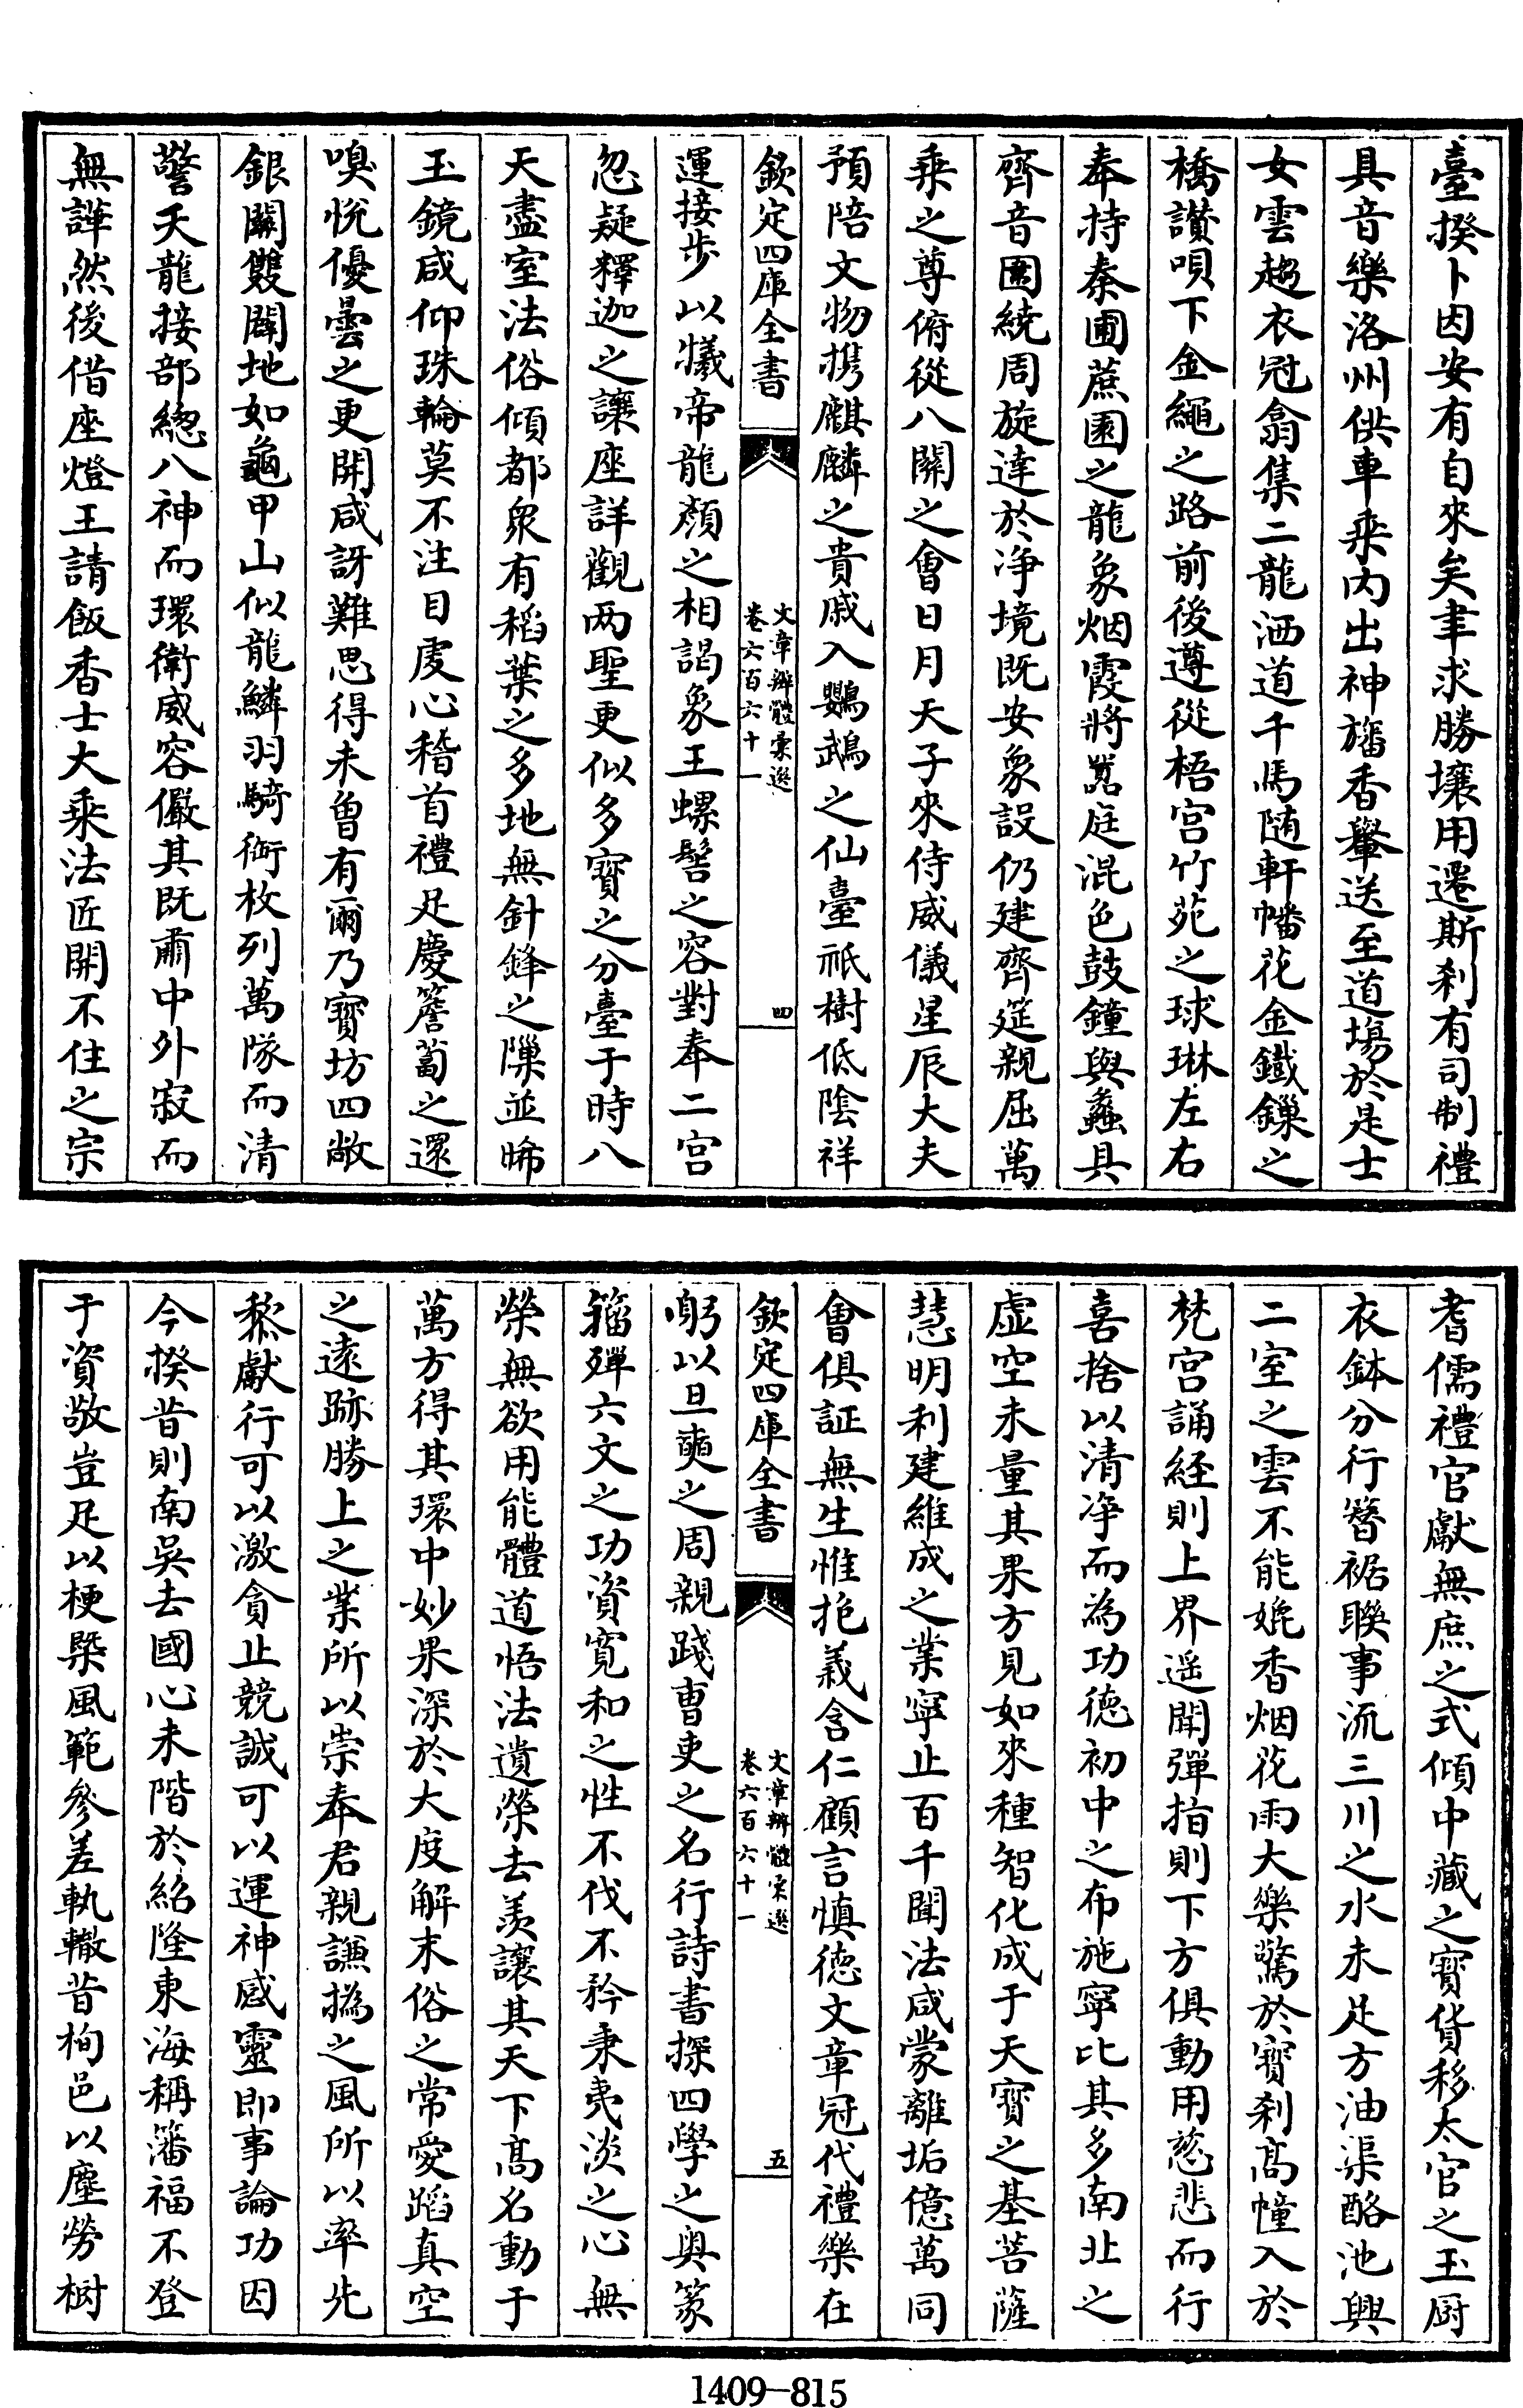 臺揆卜因安有自來矣聿求勝壤用遷斯刹有司制禮
具音樂洛州供車乘内出神旛香轝送至道塲於是士
女雲趨衣冠翕集二龍洒道千馬随軒幡花金鐡鏁之
橋讃唄下金繩之路前後遵從梧宫竹苑之球琳左右
奉持奈圃蔗園之龍象烟霞將罽庭混色鼓鐘與蠡具
齊音圍繞周旋逹於净境既安象設仍建齊筵親屈萬
乘之尊俯從八關之㑹日月天子來侍威儀星辰大夫
預陪文物携麒麟之貴戚入鸚鵡之仙臺祇樹低陰祥
欽定四庫全書
文章辨體彚選
卷六百六十一
四
運接步以犧帝龍顔之相謁象王螺髻之容對奉二宫
忽疑釋迦之讓座詳觀兩聖更似多寳之分臺于時八
天盡室法俗傾都衆有稻葉之多地無針鋒之隟並晞
玉鏡咸仰珠輪莫不注目䖍心稽首禮足慶簷蔔之還
嗅悦優曇之更開咸訝難思得未曾有爾乃寳坊四敞
銀闗雙闢地如龜甲山似龍鱗羽騎銜枚列萬隊而清
警天龍接部緫八神而環衛威容儼其既肅中外寂而
無譁然後借座燈王請飯香士大乘法匠開不住之宗
耆儒禮官獻無庶之式傾中藏之寳貨移太官之玉厨
衣鉢分行簪裾聨事流三川之水未足方油渠酪池興
二室之雲不能㛹香烟花雨大樂驚於寳刹髙幢入於
梵宫誦經則上界遥聞彈指則下方俱動用慈悲而行
喜捨以清净而為功德初中之布施寧比其多南北之
虚空未量其果方見如來種智化成于天寳之基菩薩
慧明利建維成之業寧止百千聞法咸蒙離垢億萬同
㑹俱証無生惟抱義含仁顧言慎德文章冠代禮樂在
欽定四庫全書
文章辨體彚選
卷六百六十一
五
躬以旦奭之周親踐曹吏之名行詩書探四學之奥篆
籀殫六文之功資寛和之性不伐不矜秉夷淡之心無
榮無欲用能體道悟法遺榮去羡讓其天下髙名動于
萬方得其環中妙果深於大度解末俗之常愛蹈真空
之遠跡勝上之業所以崇奉君親謙撝之風所以率先
黎獻行可以激貪止競誠可以運神感靈即事論功因
今揆昔則南吳去國心未階於紹隆東海稱籓福不登
于資敬豈足以梗㮣風範參差軌轍昔栒邑以塵勞樹
1409—815